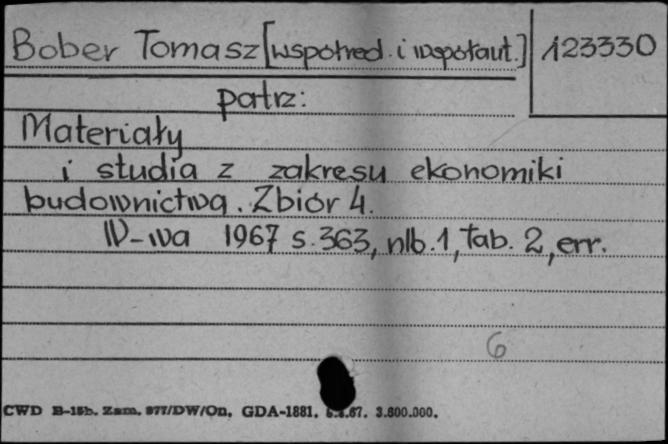 Bober Tomasz [współred. i współaut.] 123330
patrz:
Materiały
i studia z zakresu ekonomiki
budownictwa. Zbiór 4.
W-wa 1967 s. 363, nlb. 1, tab. 2, err.
6
CWD B-15b. Zam. 977/DW/On. GDA-1881. .67. 3.600.000.